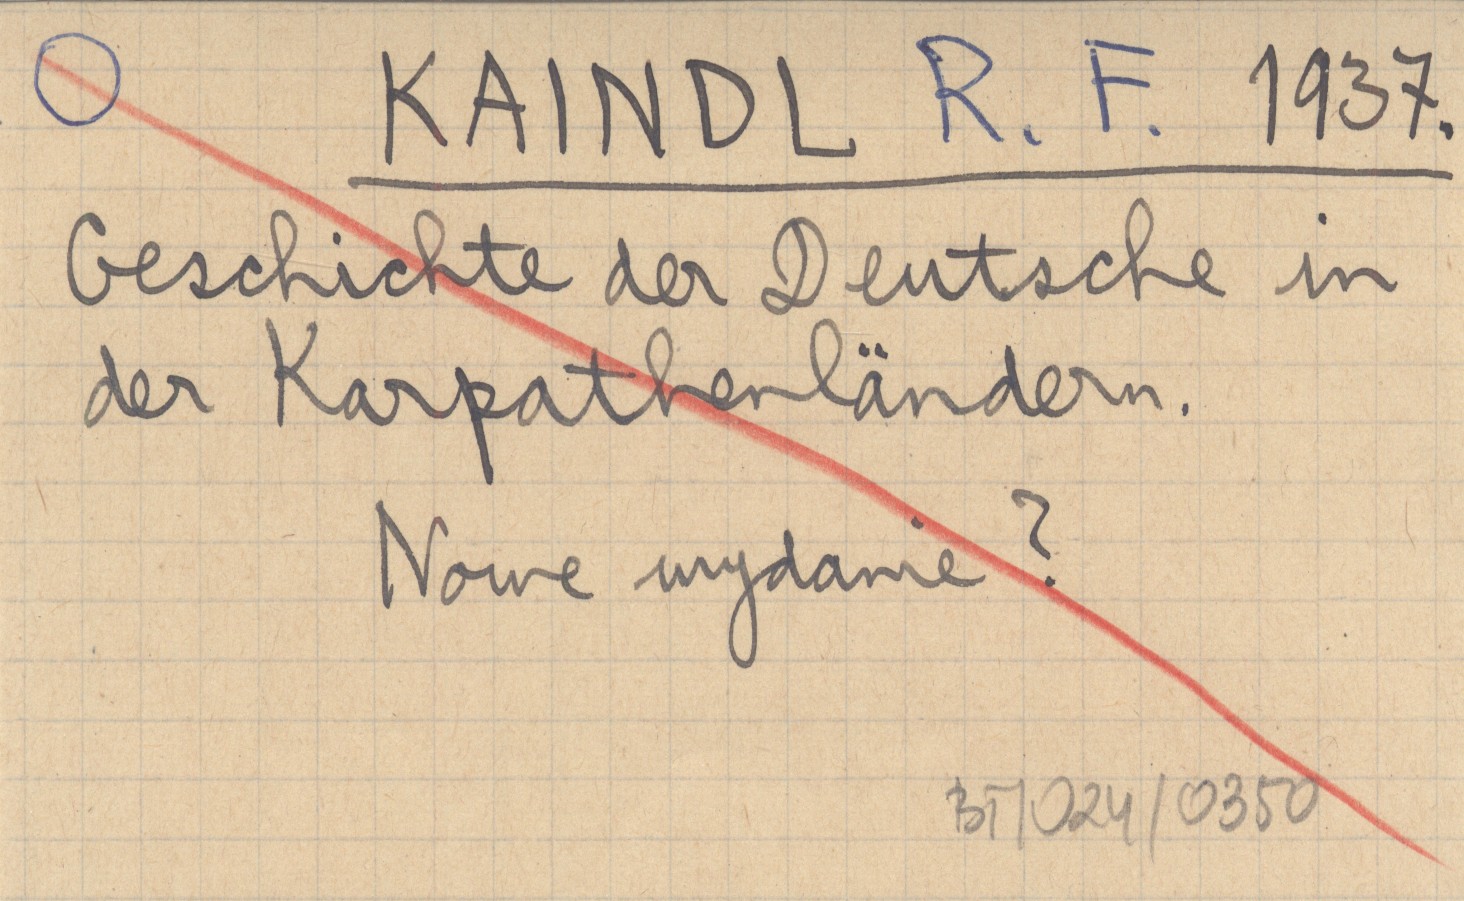 KAINDL R. F. 1937.
Geschichte der Deutsche in
der Karpathenländern.
Nowe wydanie?
BT/024/0350